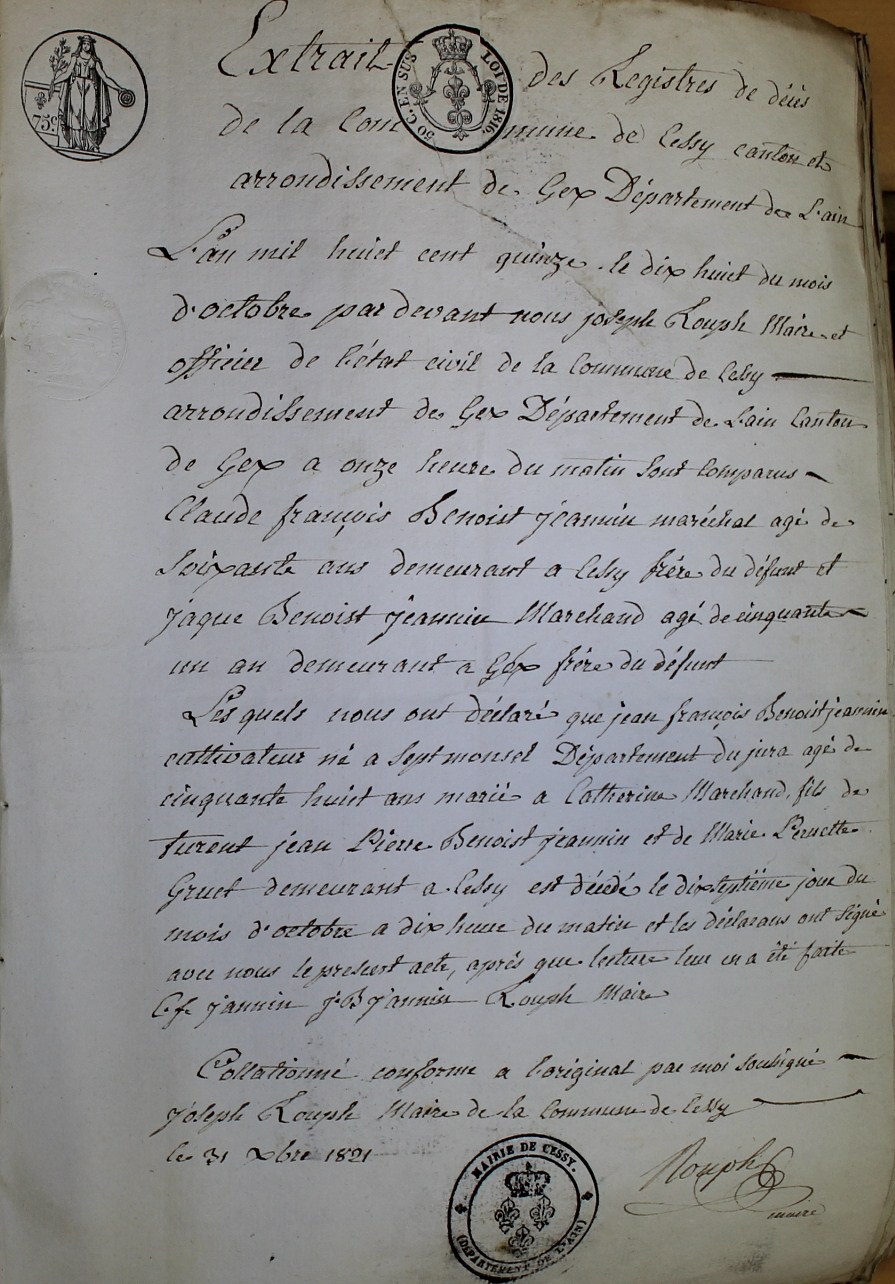 75c.
50 C. EN SUS
LOI DE 1816.
Extrait des Registres de décès
de la Commune de Cessy canton et
arrondissement de Gex Département de L'ain
L'an mil huict cent quinze le dix huict du mois
d'octobre par devant nous joseph Rouph Maire et
officier de l'état civil de la Commune de Cessy
arrondissement de Gex Département de L'ain Canton
de Gex a onze heure du matin sont Comparus
Claude françois Benoist Jeannin maréchal agé de
soixante ans demeurant a Cessy frére du défunt et
Jaque Benoist Jeannin Marchand agé de cinquante
un an demeurant a Gex frére du défunt
Les quels nous ont déclaré que jean françois Benoist jeannin
cultivateur né a Septmonsel Département du jura agé de
cinquante huit ans marié a Catherine Marchand, fils de
jean Pierre Benoist jeannin et de Marie Pernette
Gruet demeurant a Cessy est décédé le dixseptiéme jour du
mois d'octobre a dix heure du matin et les déclarans ont signé
avec nous le present acte, aprés que lecture leur en a été faite
C. f. Jannin j. B Jannin Rouph Maire
Collationné conforme a l'original par moi soussigné
Joseph Rouph Maire de la Commune de Cessy
le 31 xbre 1821
Rouph
maire
MAIRIE DE CESSY.
(DÉPARTEMENT DE L'AIN)